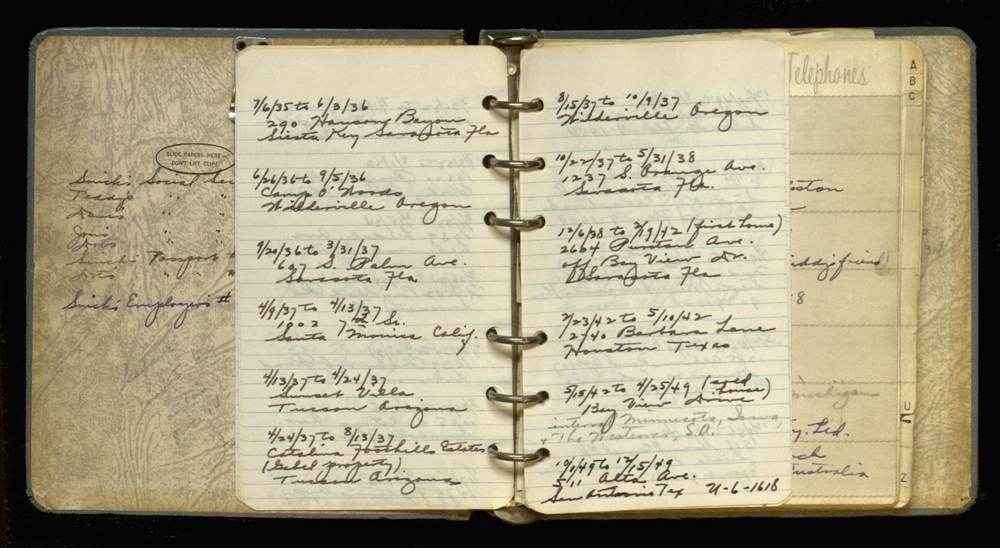 SLIDE PAPERS HERE—
DON'T LIFT CLIP!
Smick's Social Sec
Teddy's " "
" "
" "
Dot's " "
Smick's Passport #
Dot's " "
Smick's Employer's #
7/6/35 to 6/3/36
290 Hansons Bayou
Siesta Key Sarasota Fla
6/26/36 to 9/5/36
Camp O' Woods
Wilderville Oregon
9/20/36 to 3/31/37
607 S. Palm Ave.
Sarasota Fla
4/9/37 to 4/13/37
1802 7th St.
Santa Monica Calif.
4/13/37 to 4/24/37
Sunset Villa
Tucson Arizona
4/24/37 to 8/13/37
Catalina Foothills Estates
(Gabel property).
Tucson Arizona
8/15/37 to 10/9/37
Wilderville Oregon
10/22/37 to 5/31/38
1237 S. Orange Ave.
Sarasota Fla.
12/6/38 to 2/19/42 (first home)
2664 Puritan Ave.
off Bay View Dr.
Sarasota Fla
2/23/42 to 5/10/42
1240 Barbara Lane
Houston Texas
5/15/42 to 4/25/49 (sold house)
1 Bay View Drive
Minnesota, Iowa,
+ The Westerner, S.A.
10/1/49 to 12/15/49
511 Alta Ave.
San Antonio Tex U-6-1618
Telephones
A
B
C
U
Z
ston
friend)
8
Michigan
y. Ltd.
ck
Australia